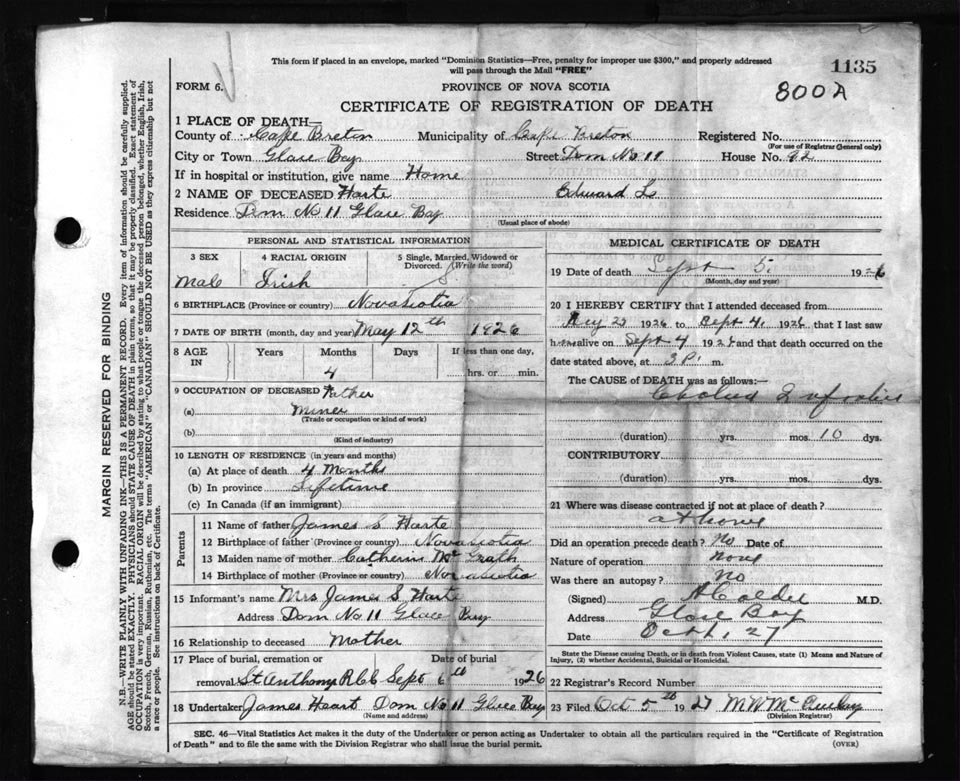 This form if placed in an envelope, marked "Dominion Statistics—Free, penalty for improper use $300," and properly addressed
will pass through the Mail "FREE"
1135
FORM 6.
PROVINCE OF NOVA SCOTIA
800A
CERTIFICATE OF REGISTRATION OF DEATH
1 PLACE OF DEATH—
County of Cape Breton Municipality of Cape Breton Registered No.
(For use of Registrar General only)
City or Town Glace Bay Street Dom No 11 House No. 92
If in hospital or institution, give name Home
2 NAME OF DECEASED Harte Edward
Residence Dom No 11 Glace Bay
(Usual place of abode)
PERSONAL AND STATISTICAL INFORMATION
3 SEX 4 RACIAL ORIGIN 5 Single, Married, Widowed or
Divorced. (Write the word)
Male Irish S.
6 BIRTHPLACE (Province or country) Novascotia
7 DATE OF BIRTH (month, day and year) May 12th 1926
8 AGE IN Years Months Days If less than one day,
4 hrs. or min.
9 OCCUPATION OF DECEASED Father
(a) Miner
(Trade or occupation or kind of work)
(b)
(Kind of industry)
10 LENGTH OF RESIDENCE (in years and months)
(a) At place of death 4 Months
(b) In province Lifetime
(c) In Canada (if an immigrant)
Parents
11 Name of father James S Harte
12 Birthplace of father (Province or country) Novascotia
13 Maiden name of mother Catherin McGrath
14 Birthplace of mother (Province or country) Novascotia
15 Informant's name Mrs James S Harte
Address Dom No 11 Glace Bay
16 Relationship to deceased Mother
17 Place of burial, cremation or Date of burial
removal St Anthony R C C Sept 6th 1926
18 Undertaker James Heart Dom No 11 Glace Bay
(Name and address)
MEDICAL CERTIFICATE OF DEATH
19 Date of death Sept 5. 1926
(Month, day and year)
20 I HEREBY CERTIFY that I attended deceased from
Aug 23 1926 to Sept 4, 1926 that I last saw
h alive on Sept 4 192 and that death occurred on the
date stated above, at 3 P. m.
The CAUSE OF DEATH was as follows:—
Cholera Infantum
(duration) yrs. mos. 10 dys.
CONTRIBUTORY
(duration) yrs. mos. dys.
21 Where was disease contracted if not at place of death?
at home
Did an operation precede death? No Date of
Nature of operation None
Was there an autopsy? No
(Signed) A Calder M.D.
Address Glace Bay
Date Oct 1, 27
State the Disease causing Death, or in death from Violent Causes, state (1) Means and Nature of
Injury, (2) whether Accidental, Suicidal or Homicidal.
22 Registrar's Record Number
23 Filed Oct 5th 1927
(Division Registrar)
SEC. 46—Vital Statistics Act makes it the duty of the Undertaker or person acting as Undertaker to obtain all the particulars required in the "Certificate of Registration
of Death" and to file the same with the Division Registrar who shall issue the burial permit.
(OVER)
MARGIN RESERVED FOR BINDING
N.B.—WRITE PLAINLY WITH UNFADING INK—THIS IS A PERMANENT RECORD. Every item of information should be carefully supplied.
AGE should be stated EXACTLY. PHYSICIANS should STATE CAUSE OF DEATH in plain terms, so that it may be properly classified. Exact statement of
OCCUPATION is very important. RACIAL ORIGIN will be described by stating to what people or tongue the deceased person belonged, whether English, Irish,
Scotch, French, German, Russian, Ruthenian, etc. The terms "AMERICAN" or "CANADIAN" SHOULD NOT BE USED as they express citizenship but not
a race or people. See instructions on back of Certificate.